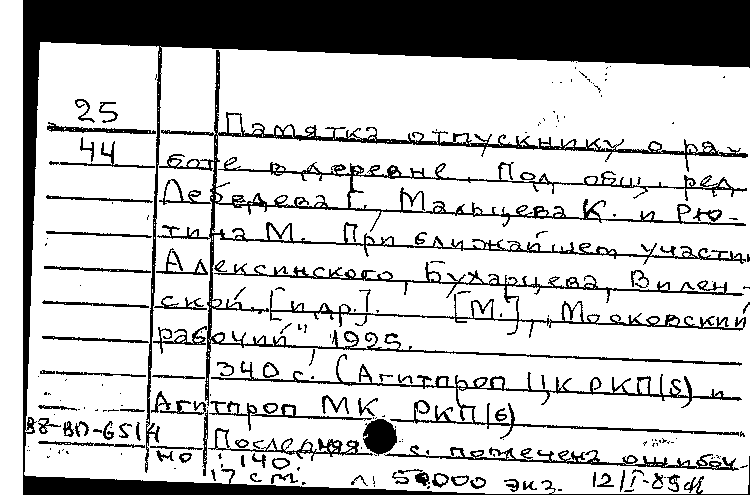 25
44
Памятка отпускнику о ра-
боте в деревне. Под общ. ред.
Лебедева Г., Мальцева К. и Рю-
тина М. При ближайшем участии
Алексинского, Бухарцева, Вилен-
ской [и др]. [М.], „Московский
рабочий", 1925.
340 с. (Агитпроп ЦК РКП(б) и
Агитпроп МК РКП(б)
88-ВП-6514
Последняя с. помечена ошибоч
но : 140.
17 см. 50000 экз. 12/I-89